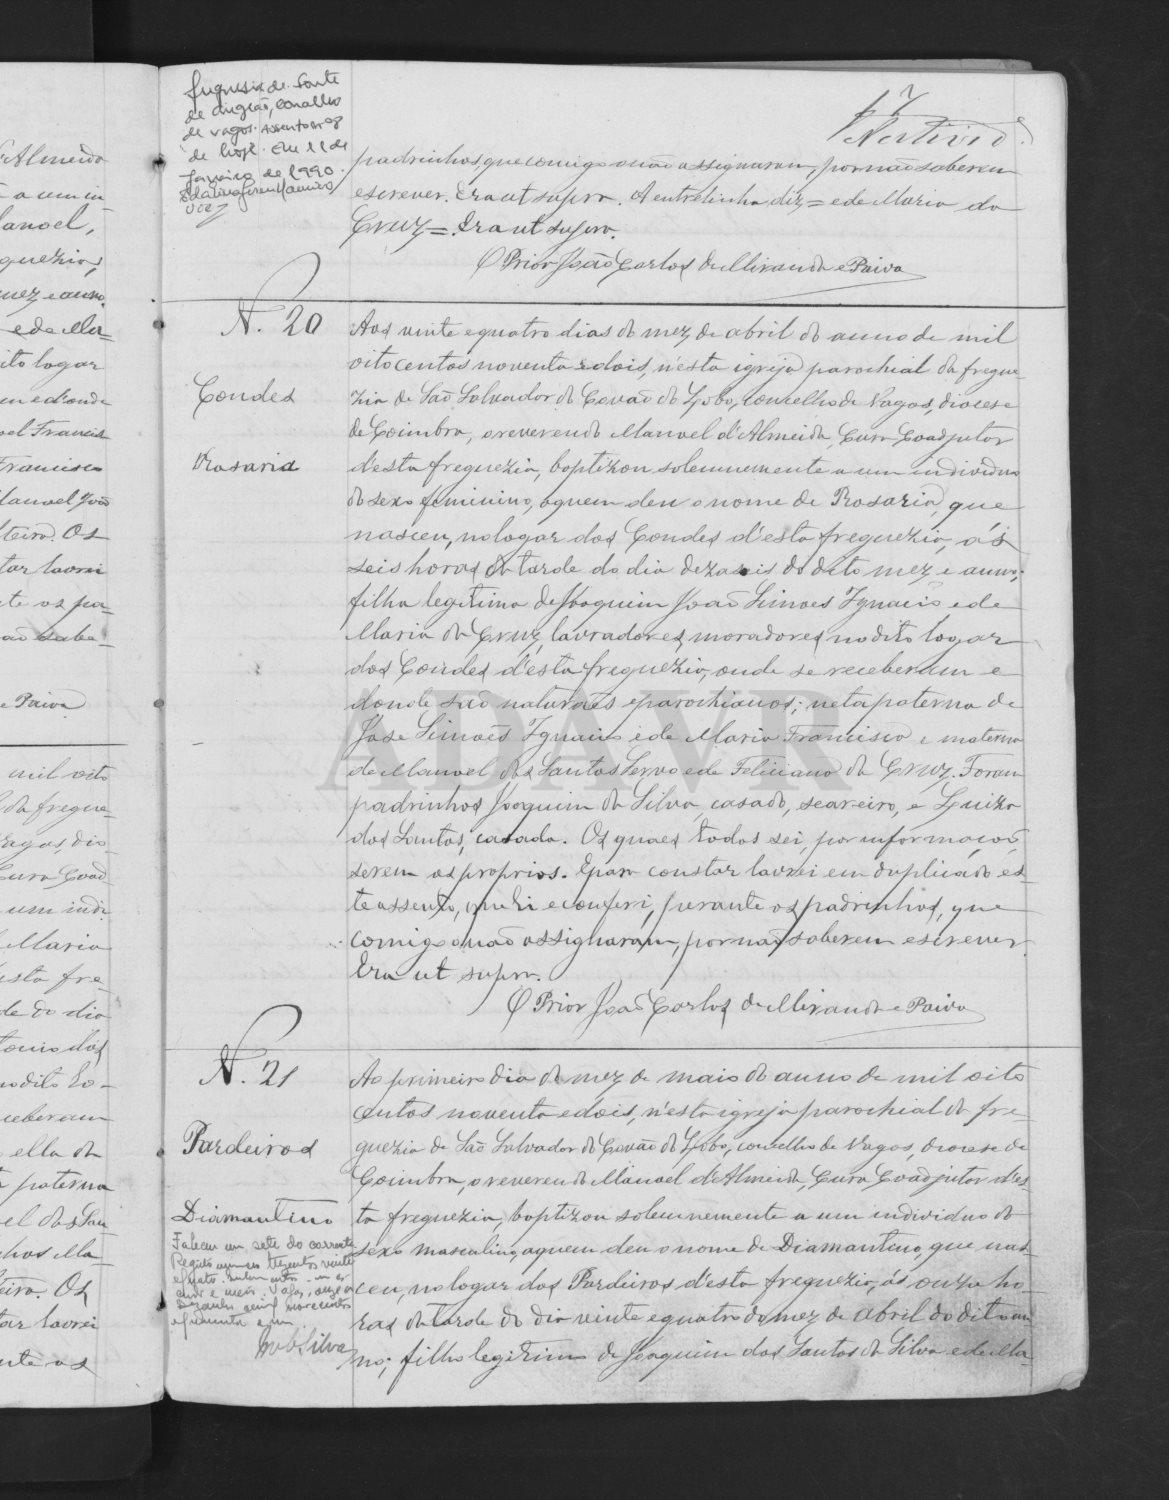 freguesia de Fonte
de Angeão, concelho
de Vagos. Assento nº 08
de hoje. Em 11 de
Janeiro de 1990.
17
padrinhos, que comigo não assignaram, por não saberem
escrever. Era ut supra. A entrelinha diz = e de Maria da
Cruz =. Era ut supra.
O Prior João Carlos de Miranda e Paiva
N. 20
Condes
Rosaria
Aos vinte e quatro dias do mez de abril do anno de mil
oitocentos noventa e dois, n'esta igreja parochial da fregue-
zia de São Salvador do Covão do Lobo, concelho de Vagos, diocese
de Coimbra, o reverendo Manoel d'Almeida, Cura Coadjutor
d'esta freguezia, baptizou solemnemente a um individuo
do sexo feminino, a quem deu o nome de Rosaria, que
nasceu, no logar dos Condes d'esta freguezia, ás
seis horas da tarde do dia dezaseis do dito mez e anno;
filha legitima de Joaquim João Simoes Ignacio e de
Maria da Cruz, lavradores, moradores no dito logar
dos Condes d'esta freguezia, onde se receberam e
donde são naturaes e parochianos; neta paterna de
José Simoes Ignacio e de Maria Francisca e materna
de Manoel dos Santos Servo e de Feliciana da Cruz. Foram
padrinhos Joaquim da Silva, casado, seareiro, e Luiza
dos Santos, casada. Os quaes todos sei, por informação,
serem os proprios. E para constar lavrei em duplicado es-
te assento, que li e conferi, perante os padrinhos, que
comigo não assignaram, por não saberem escrever.
Era ut supra.
O Prior João Carlos de Miranda e Paiva
N. 21
Pardeiros
Diamantino
Faleceu em sete do corrente
Registo numero trezentos vinte
e quatro.
Vagos, onze
Dezembro mil novecentos
e cincoenta e um.
Silva
Ao primeiro dia do mez de maio do anno de mil oito
centos noventa e dois, n'esta igreja parochial da fre-
guezia de São Salvador do Covão do Lobo, concelho de Vagos, diocese de
Coimbra, o reverendo Manoel d'Almeida, Cura Coadjutor d'es-
ta freguezia, baptizou solemnemente a um individuo do
sexo masculino, a quem deu o nome de Diamantino, que nas-
ceu, no logar dos Pardeiros d'esta freguezia, ás onze ho-
ras da tarde do dia vinte e quatro do mez de abril do dito an-
no; filho legitimo de Joaquim dos Santos da Silva e de Ma-
ADAVR